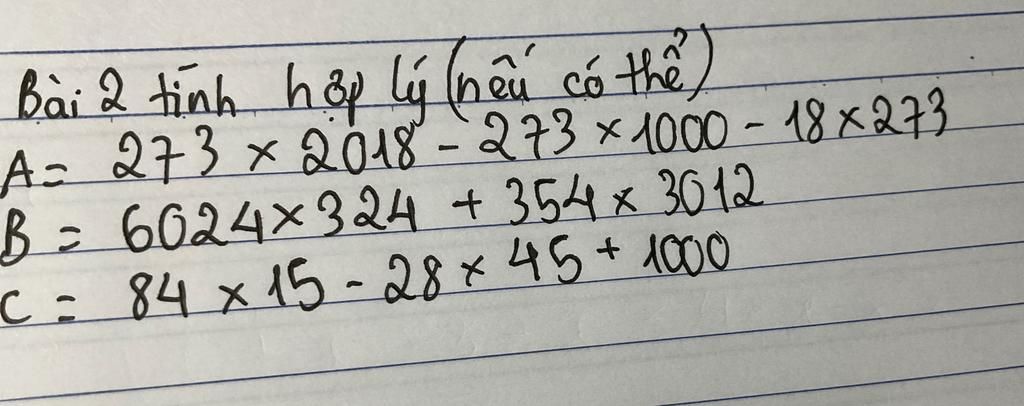 Bài 2 tính hợp lý (nếu có thể)
A = 273 × 2018 - 273 × 1000 - 18 × 273
B = 6024 × 324 + 354 × 3012
C = 84 × 15 - 28 × 45 + 1000